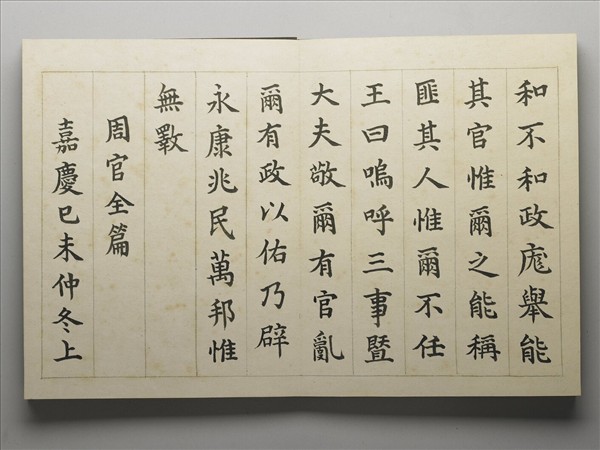 和不和政厖舉能
其官惟爾之能稱
匪其人惟爾不任
王曰嗚呼三事暨
大夫敬爾有官亂
爾有政以佑乃辟
永康兆民萬邦惟
無斁
周官全篇
嘉慶巳未仲冬上